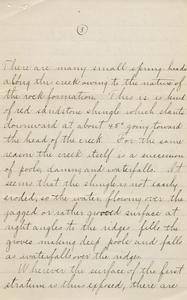 3
There are many small spring heads
along this creek owing to the nature of
the rock formation. This is a kind
of red sandstone shingle which slants
downward at about 45° going toward
the head of the creek. For the same
reason the creek itself is a succession
of pools, damns and waterfalls. It
seems that the shingle is not easily
eroded, so the water, flowing over the
jagged or rather grooved surface at
right angles to the ridges fills the
groves making deep pools and falls
as waterfalls over the ridges.
Wherever the surface of the first
stratum is thus exposed, there are